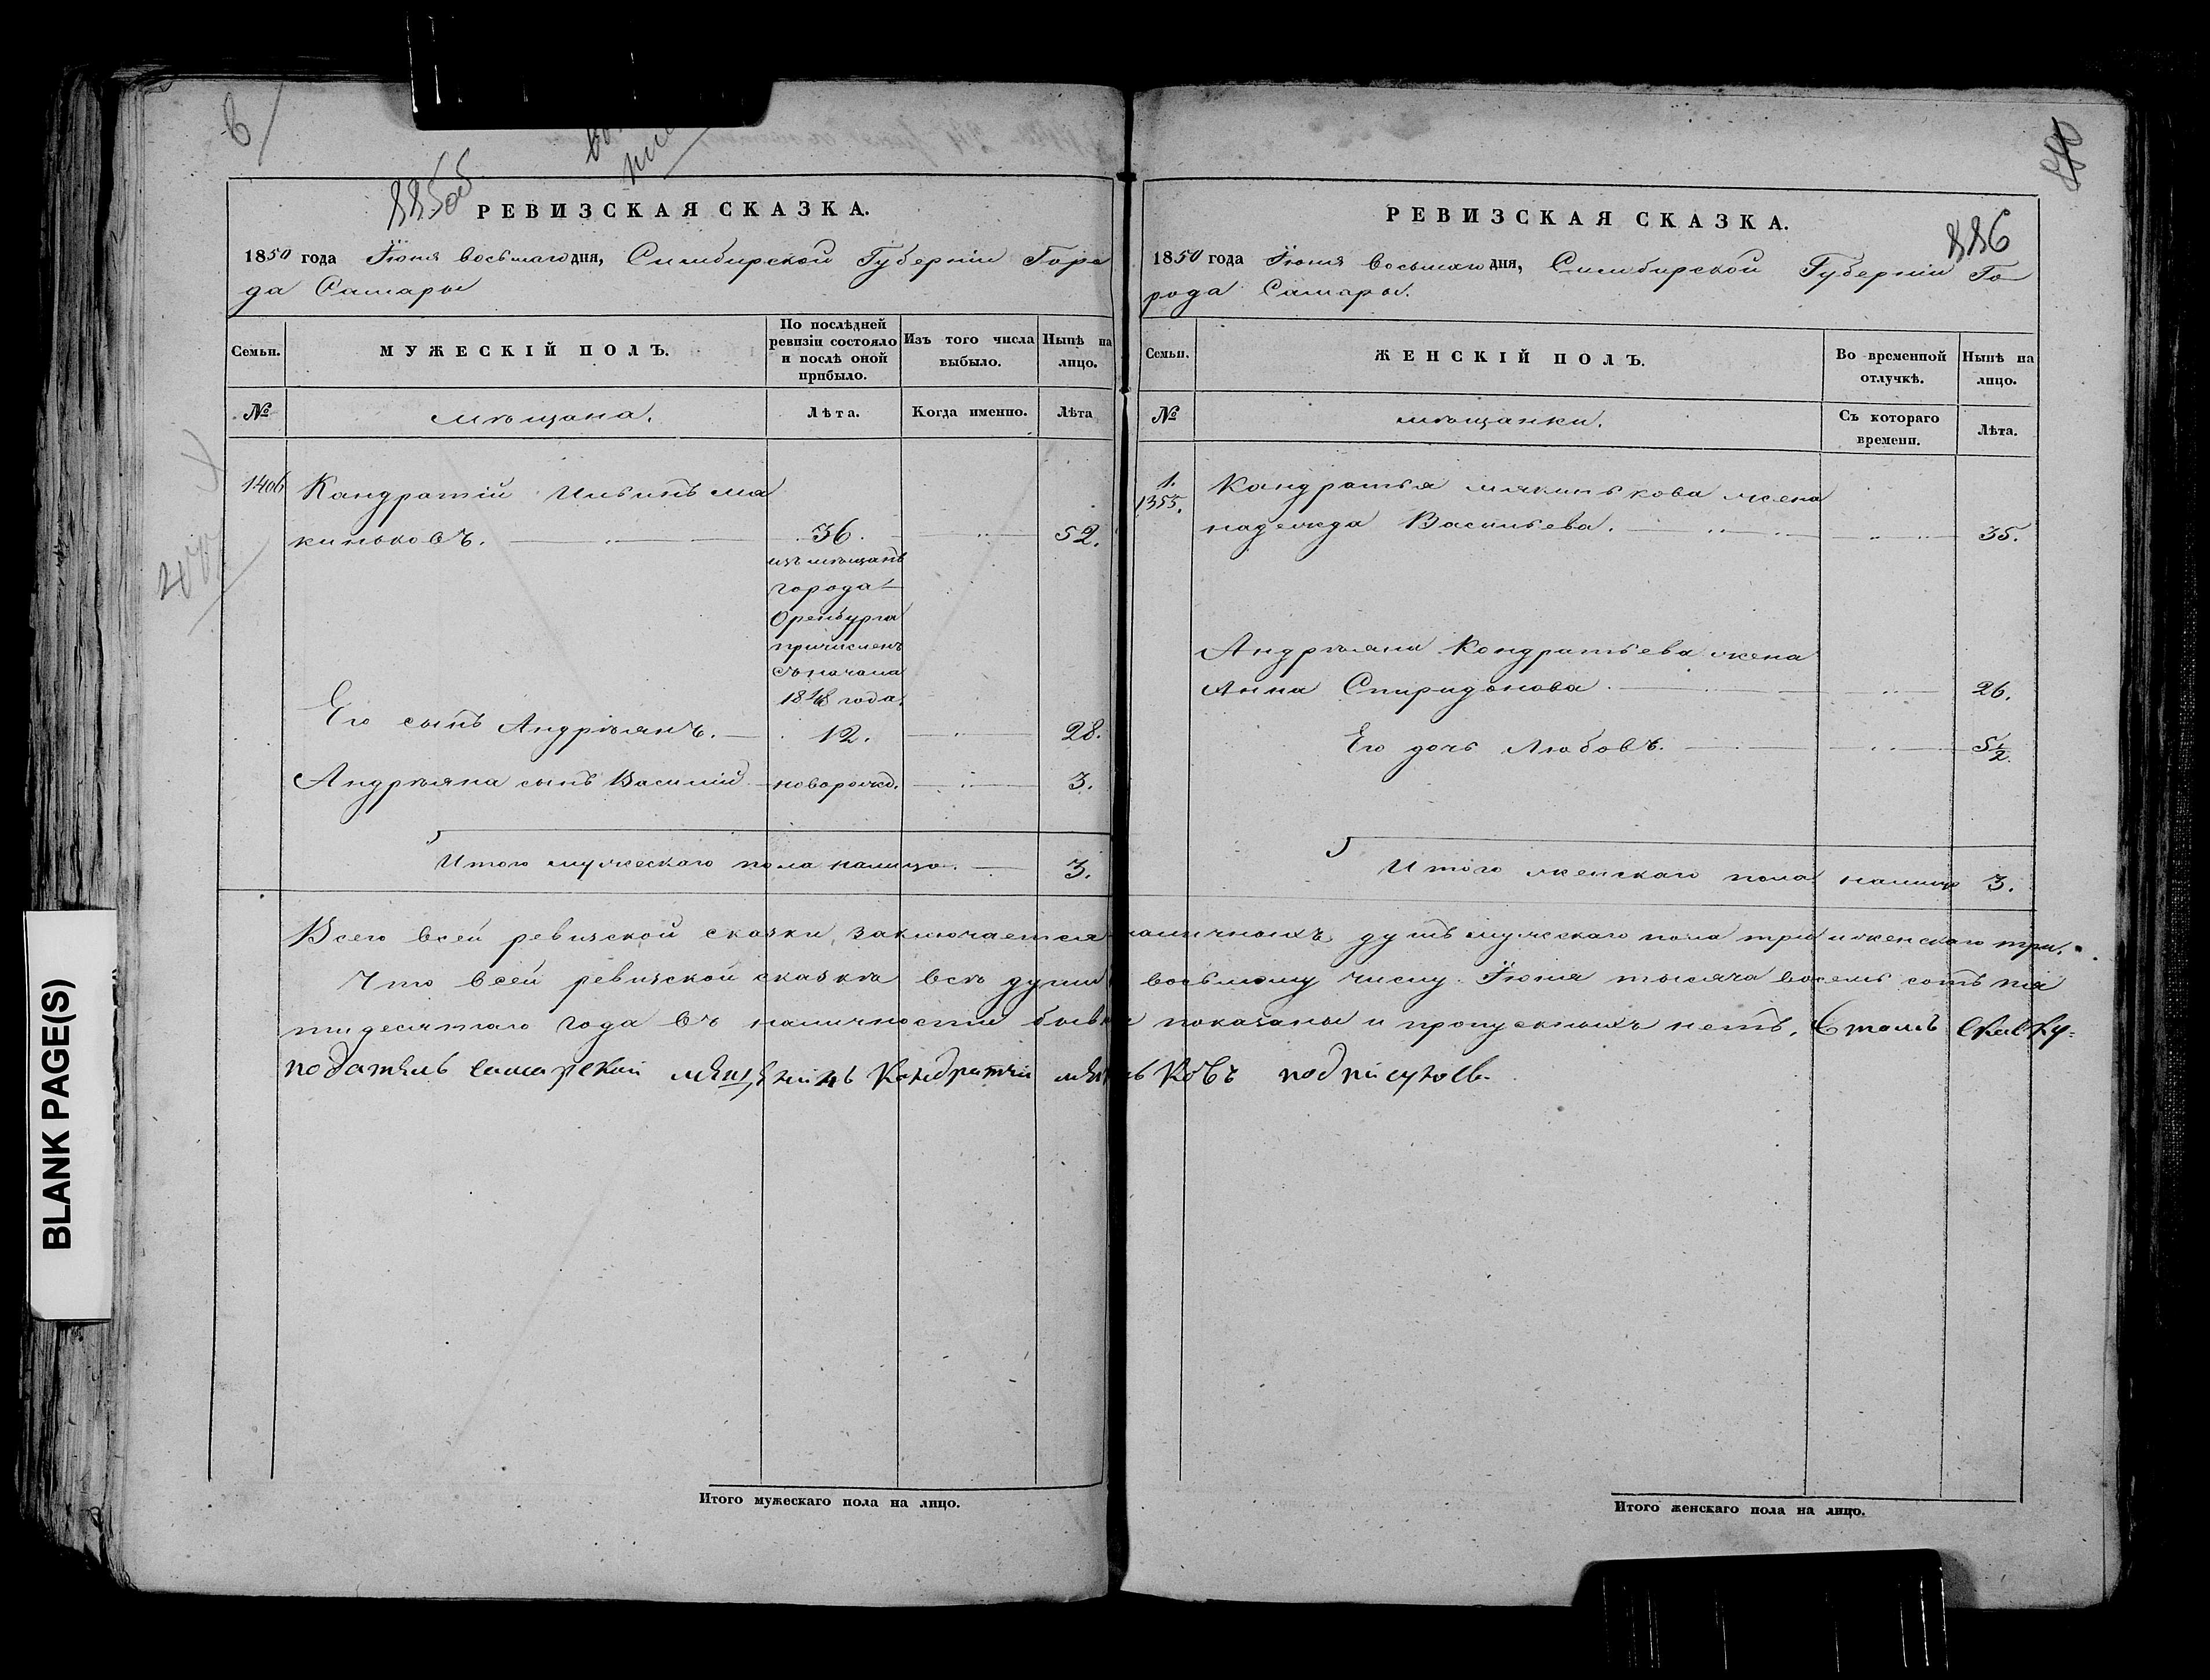 885об
РЕВИЗСКАЯ СКАЗКА.
1850 года Іюня восьмаго дня, Симбирской Губерніи Горо
да Самары
Семьи.
МУЖЕСКІЙ ПОЛЪ.
По послѣдней
ревизіи состояло
и послѣ оной
прибыло.
Изъ того числа
выбыло.
Нынѣ на
лицо.
№
мѣщана.
Лѣта.
Когда именно.
Лѣта
1406 Кандратій Ильинъ мя
киньковъ. 36. 52.
изъ мѣщанъ
города
Оренбурга
причисленъ
съ начала
1848 года.
Его сынъ Андрѣянъ. 12. 28.
Андрѣяна сынъ Василій новорожд. 3.
Итого мужескаго пола налицо. 3.
886
РЕВИЗСКАЯ СКАЗКА.
1850 года Іюня восьмаго дня, Симбирской Губерніи Го
рода Самары.
Семьи.
ЖЕНСКІЙ ПОЛЪ.
Во временной
отлучкѣ.
Нынѣ на
лицо.
№
мѣщанки.
Съ котораго
времени.
Лѣта.
1.
1355.
Кондратья мякинькова жена
надежда Васильева. 35.
Андрѣяна Кондратьева жена
Анна Спиридонова. 26.
Его дочь Любовь. 5 1/2
Итого женскаго пола налицо 3.
Всего всей ревизской сказки, заключается наличныхъ душъ мужескаго пола три и женскаго три.
Что всей ревизской сказкѣ всѣ души восьмому числу Іюня тысяча восемь сотъ пя
тидесятаго года въ наличности бывшы показаны и пропускныхъ нетъ. Къ таей скаску
податель самарской мѣщенинъ Кондратии мякиньковъ подписуюсь
Итого мужескаго пола на лицо.
Итого женскаго пола на лицо.
BLANK PAGE(S)